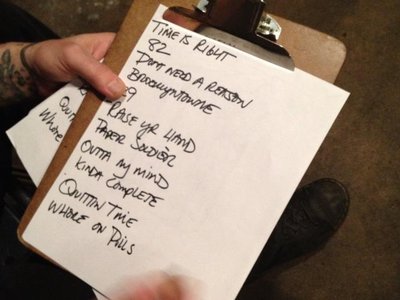 TIME IS RIGHT
82
DONT NEED A REASON
BROOKLYNTOWNE
9
RAISE YR HAND
PAPER SOLDIER
OUTTA MY MIND
KINDA COMPLETE
QUITTIN TIME
WHORE ON PILLS
Quit
Whore